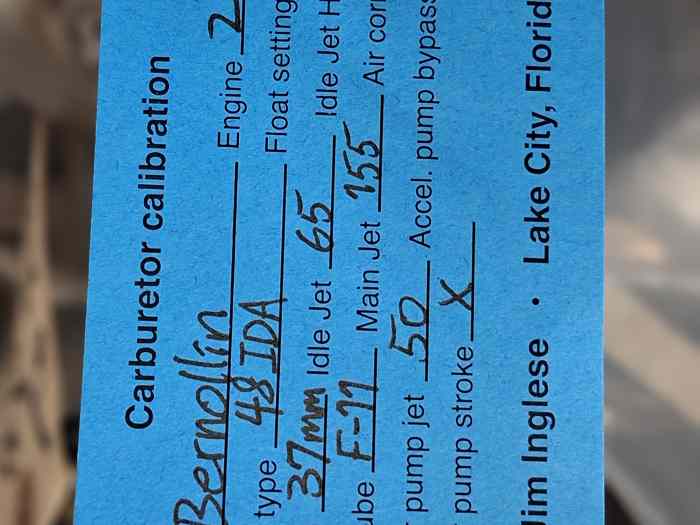 Carburetor calibration
Bernoflin Engine 2
type 48 IDA Float setting
37mm Idle Jet 65 Idle Jet H
ube F-11 Main Jet 155 Air corr
pump jet 50 Accel. pump bypass
pump stroke X
Jim Inglese · Lake City, Florid